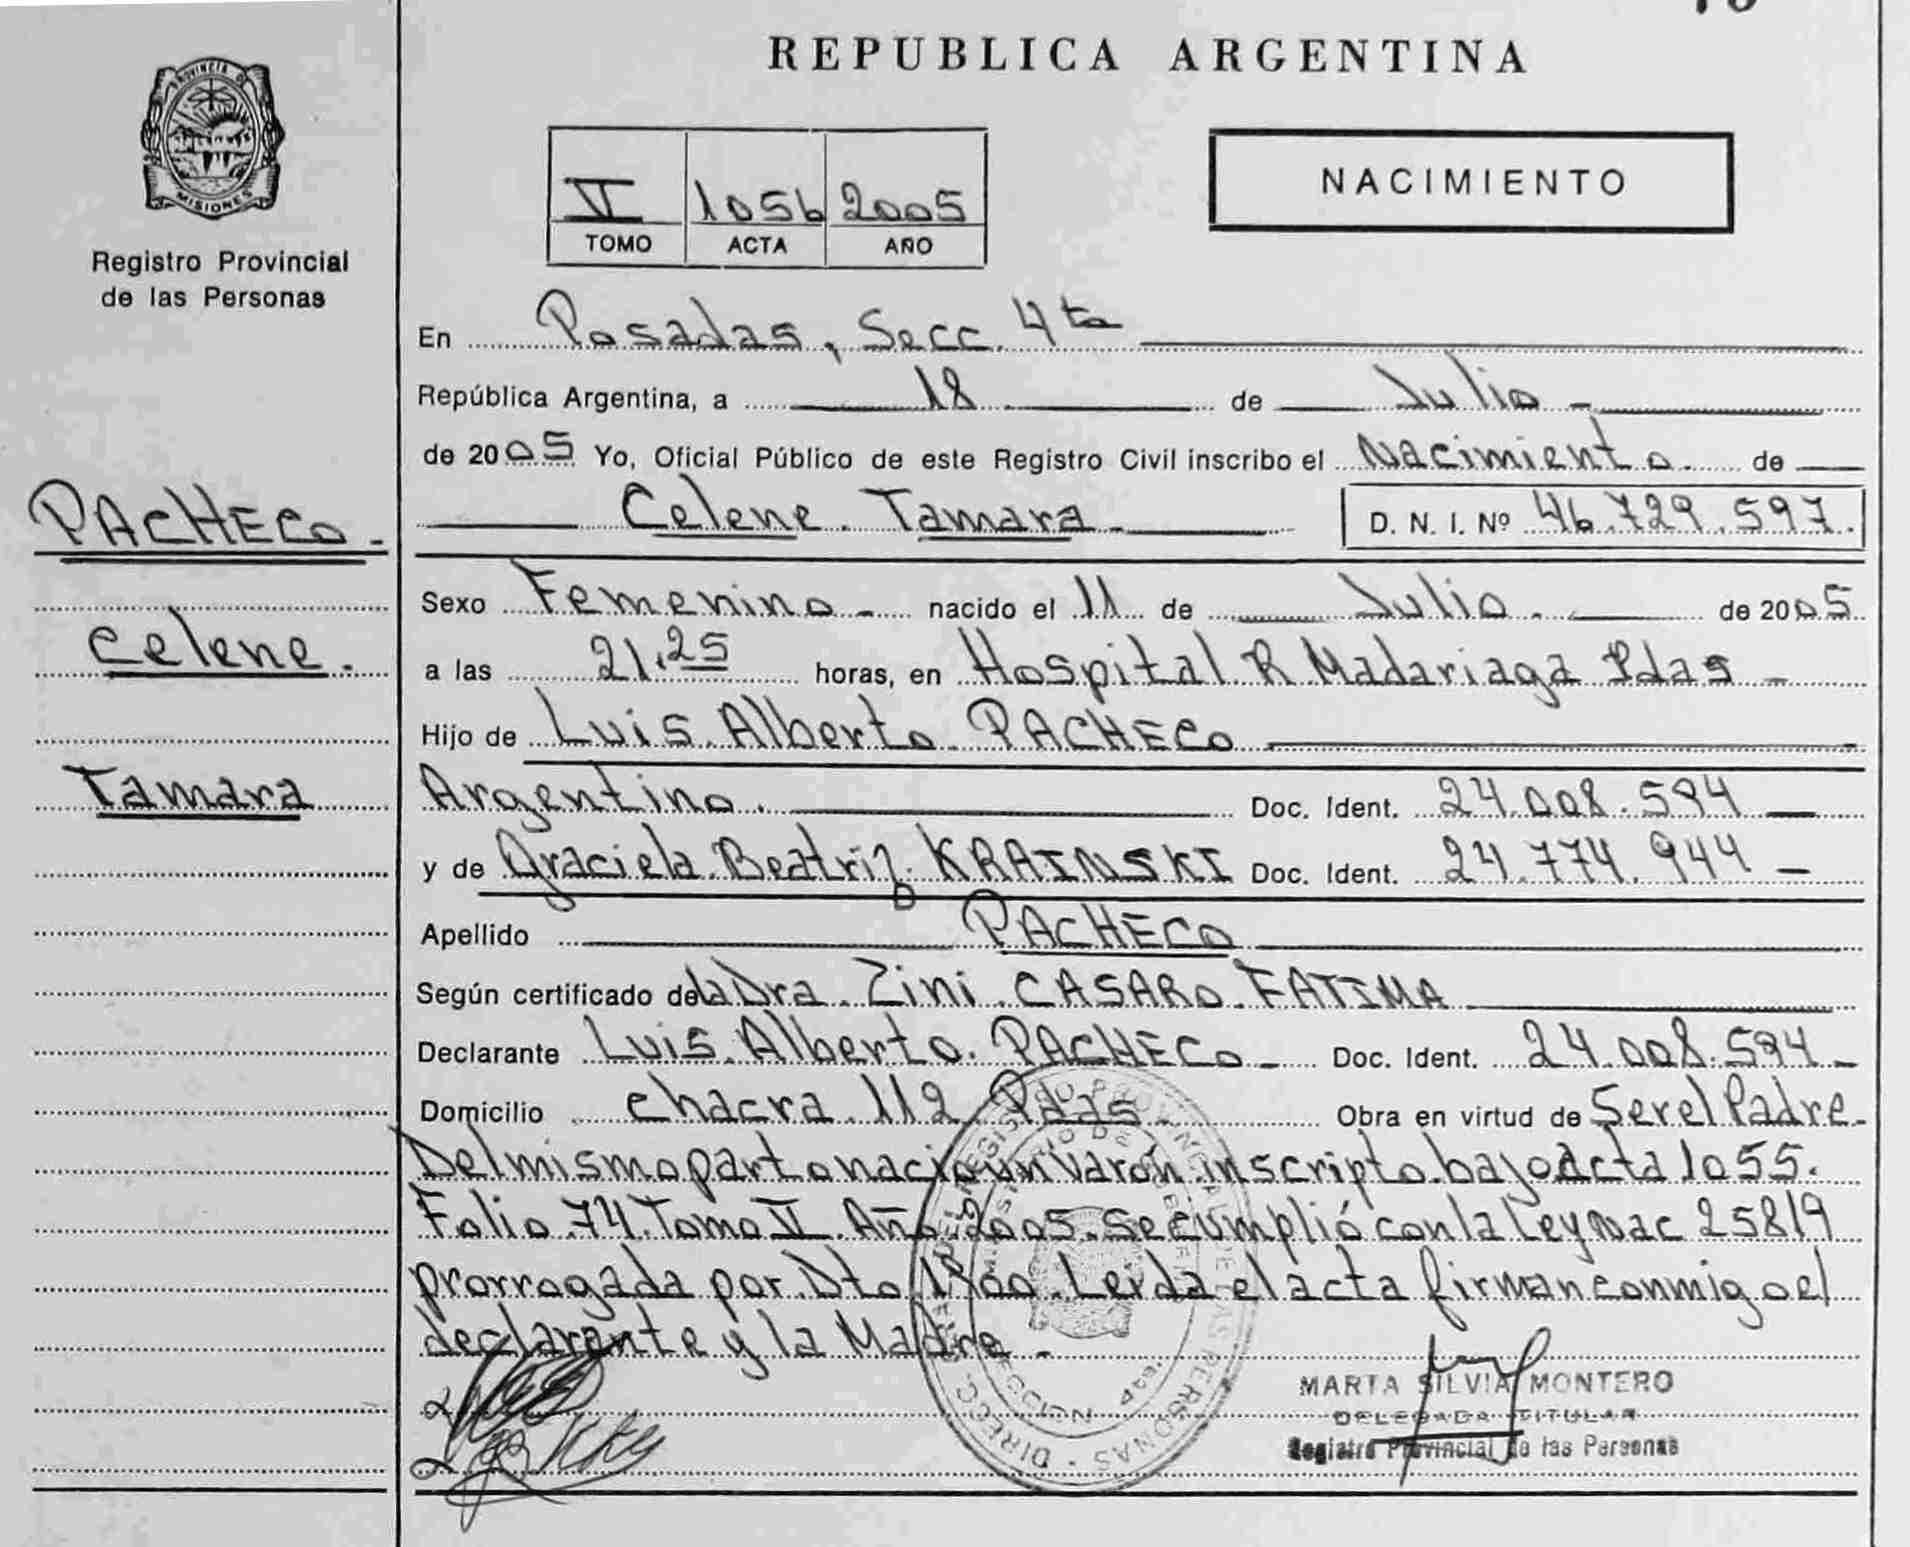 REPUBLICA ARGENTINA
PROVINCIA DE
MISIONES
Registro Provincial
de las Personas
NACIMIENTO
V 1056 2005
TOMO ACTA AÑO
En Posadas, Secc. 4ta
República Argentina, a 18 de Julio
de 2005 Yo, Oficial Público de este Registro Civil inscribo el Nacimiento de
Celene Tamara D. N. I. Nº 46.729.597.
PACHECO
Celene
Tamara
Sexo Femenino nacido el 11 de Julio de 2005
a las 21,25 horas, en Hospital R Madariaga Pdas
Hijo de Luis Alberto PACHECO
Argentino. Doc. Ident. 24.008.594
y de Graciela Beatriz KRAINSKI Doc. Ident. 24.774.944
Apellido PACHECO
Según certificado de la Dra. Zini CASARO FATIMA
Declarante Luis Alberto PACHECO Doc. Ident. 24.008.594
Domicilio chacra 112 Pdas Obra en virtud de Ser el Padre
Del mismo parto nacio un varón inscripto bajo acta 1055.
Folio 74. Tomo V. Año 2005. Se cumplió con la Ley Nac 25819
prorrogada por Dto. Leida el acta firman conmigo el
declarante y la Madre
MARTA SILVIA MONTERO
DELEGADA TITULAR
Registro Provincial de las Personas